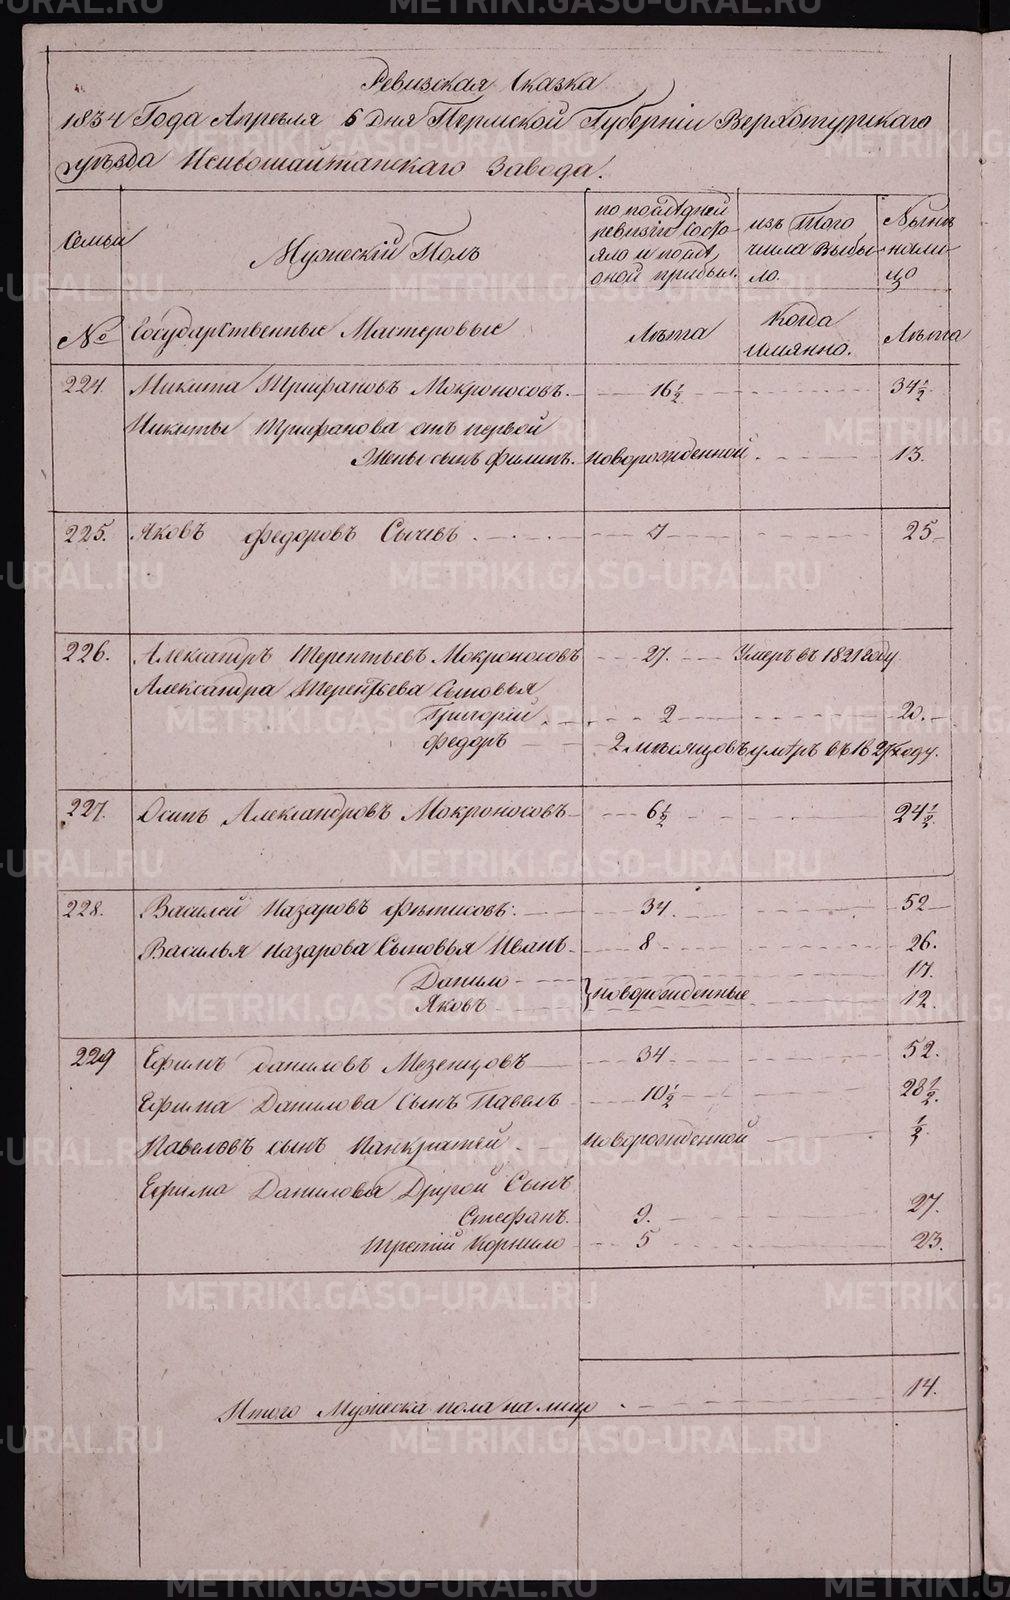 Ревизская Сказка
1834 Года Апреля 5 дня Пермской Губерніи Верхотурскаго
уѣзда Нейвошайтанскаго Завода.
Семьи
Мужескій Полъ
по послѣдней
ревизіи Состо
яло и послѣ
оной прибыл.
изъ того
числа Выбы-
ло.
Нынѣ
нали-
цо
№
Государственные Мастеровые
Лѣта
Когда
имянно.
Лѣта
224. Микита Трифановъ Мокроносовъ. 16 1/2 34 1/2
Никиты Трифанова отъ первой
Жены сынъ Филипъ. новорожденной 13.
225. Яковъ Федоровъ Сычевъ 7 25
226. Александръ Терентьевъ Мокроносовъ 27. Умеръ въ 1821 году
Александра Терентьева Сыновья
Григорій 2 20.
Федоръ 2 мѣсяцовъ умѣръ въ 18 году.
227. Осипъ Александровъ Мокроносовъ 6 1/2 24 1/2
228. Василей Назаровъ Фѣтисовъ: 34. 52
Василья Назарова Сыновья Иванъ 8 26.
Данило 17.
Яковъ } новорожденные 12.
229 Ефимъ Даниловъ Мезенцовъ 34 52.
Ефима Данилова Сынъ Павелъ 10 1/2 28 1/2.
Павеловъ сынъ Панкратей новорожденной 1/2.
Ефима Данилова Другой Сынъ
Стефанъ. 9. 27.
третій Корнило 5 23.
Итого Мужеска пола на лицо 14.
METRIKI.GASO-URAL.RU